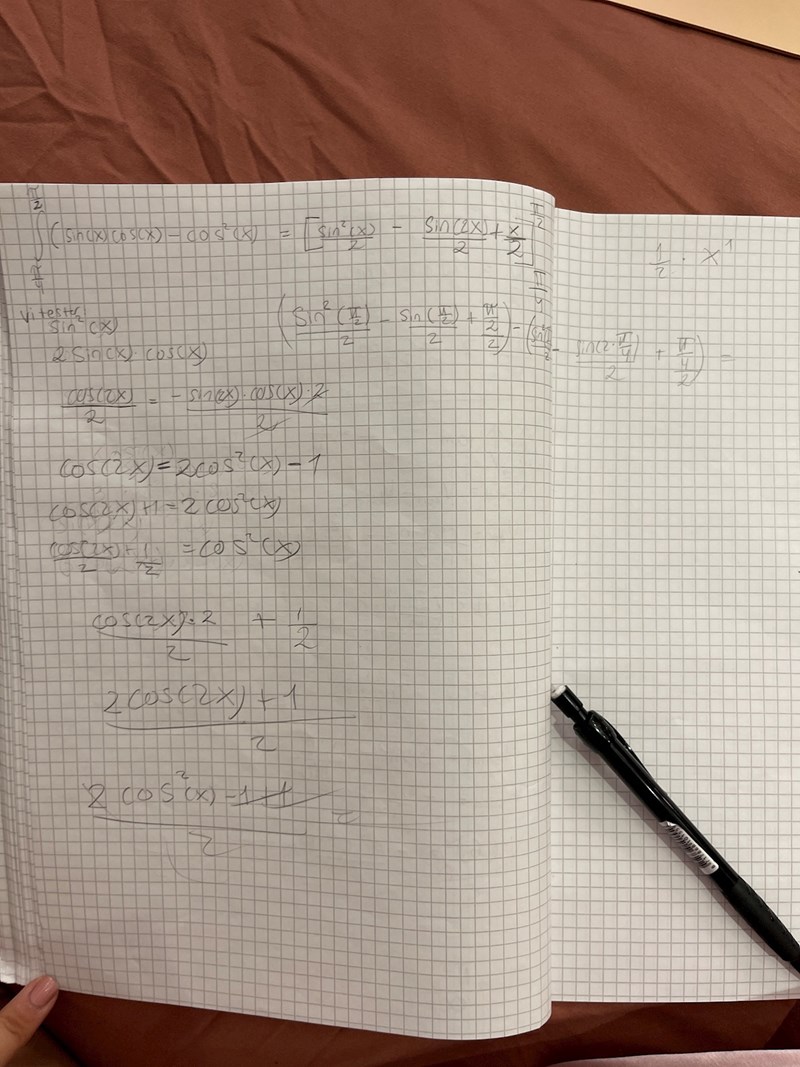 ∫_{π/4}^{π/2} (sin(x)cos(x) − cos²(x) = [sin²(x)/2 − sin(2x)/2 + x/2]_{π/4}^{π/2}
1/2 · x¹
sin²(x)
(sin²(π/2)/2 − sin(π/2)/2 + (π/2)/2) − (sin²/2 − sin(2·π/4)/2 + (π/4)/2) =
2 sin(x) · cos(x)
cos(2x)/2 = −sin(2x)·cos(x)·2/2
cos(2x) = 2cos²(x) − 1
cos(2x) + 1 = 2cos²(x)
cos(2x)/2 + 1/2 = cos²(x)
cos(2x)·2/2 + 1/2
2cos(2x) + 1/2
2 cos²(x) − 1 + 1/2 =